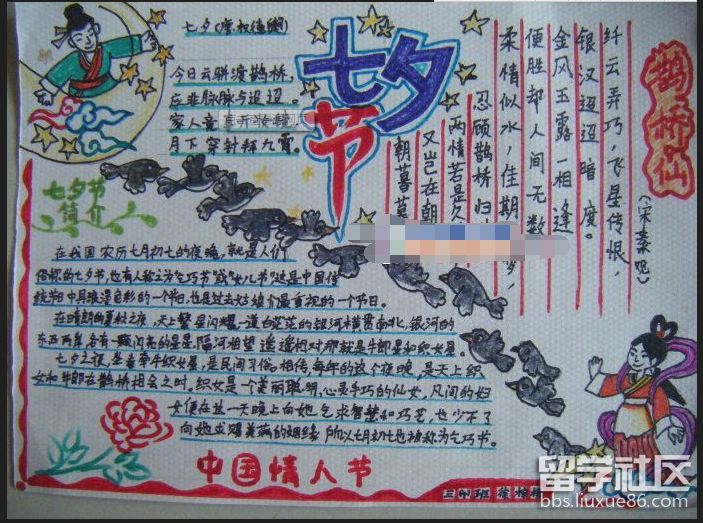 七夕节
七夕(唐·权德舆)
今日云骈渡鹊桥，
应非脉脉与迢迢。
家人竞喜开妆镜
月下穿针拜九霄。
鹊桥仙
(宋秦观)
纤云弄巧，飞星传恨，
银汉迢迢暗度。
金风玉露一相逢
便胜却人间无数
柔情似水，佳期
梦，
忍顾鹊桥归
两情若是久
又岂在朝
朝暮暮
七夕节
简介
在我国农历七月初七的夜晚，就是人们
俗称的七夕节，也有人称之为乞巧节或"女儿节"这是中国传
统节日中具浪漫色彩的一个节日，也是过去姑娘们最重视的一个节日。
在晴朗的夏秋之夜，天上繁星闪耀一道白茫茫的银河横贯南北，银河的
东西两岸，各有一颗闪亮的星星，隔河相望，遥遥相对那就是牵牛星和织女星。
七夕之夜，坐看牵牛织女星，是民间习俗。相传每年的这个夜晚，是天上织
女和牛郎在鹊桥相会之时。织女是一个美丽聪明，心灵手巧的仙女，凡间的妇
女便在这一天晚上向她乞求智慧和巧艺，也少不了
向她求赐美满的姻缘，所以七月初七也被称为乞巧节。
中国情人节
班
留学社区
bbs.liuxue86.com